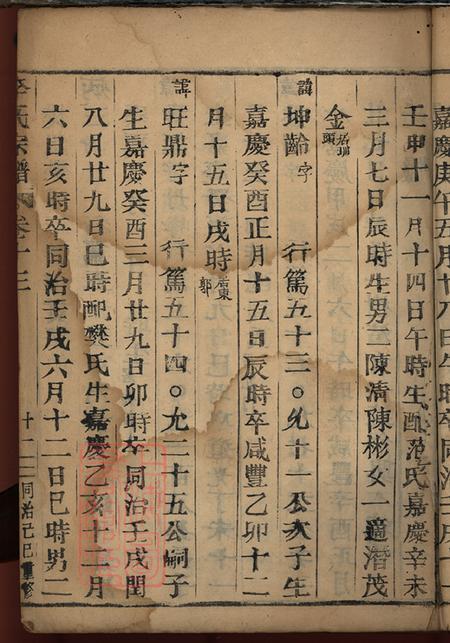 嘉慶庚午五月十八日午時卒同治
壬申十一月十四日午時生配范氏嘉慶辛未
三月七日辰時生男二陳清陳彬女一適潛茂
金
諱坤齡字 行篤五十三○允十一公次子生
嘉慶癸酉正月十五日辰時卒咸豐乙卯十二
月十五日戌時
諱旺鼎字 行篤五十四○允二十五公嗣子
生嘉慶癸酉三月廿九日卯時卒同治壬戌閏
八月廿九日巳時配樊氏生嘉慶乙亥十二月
六日亥時卒同治壬戌六月十二日巳時男二
氏宗譜 卷十三 十二 同治己巳重修